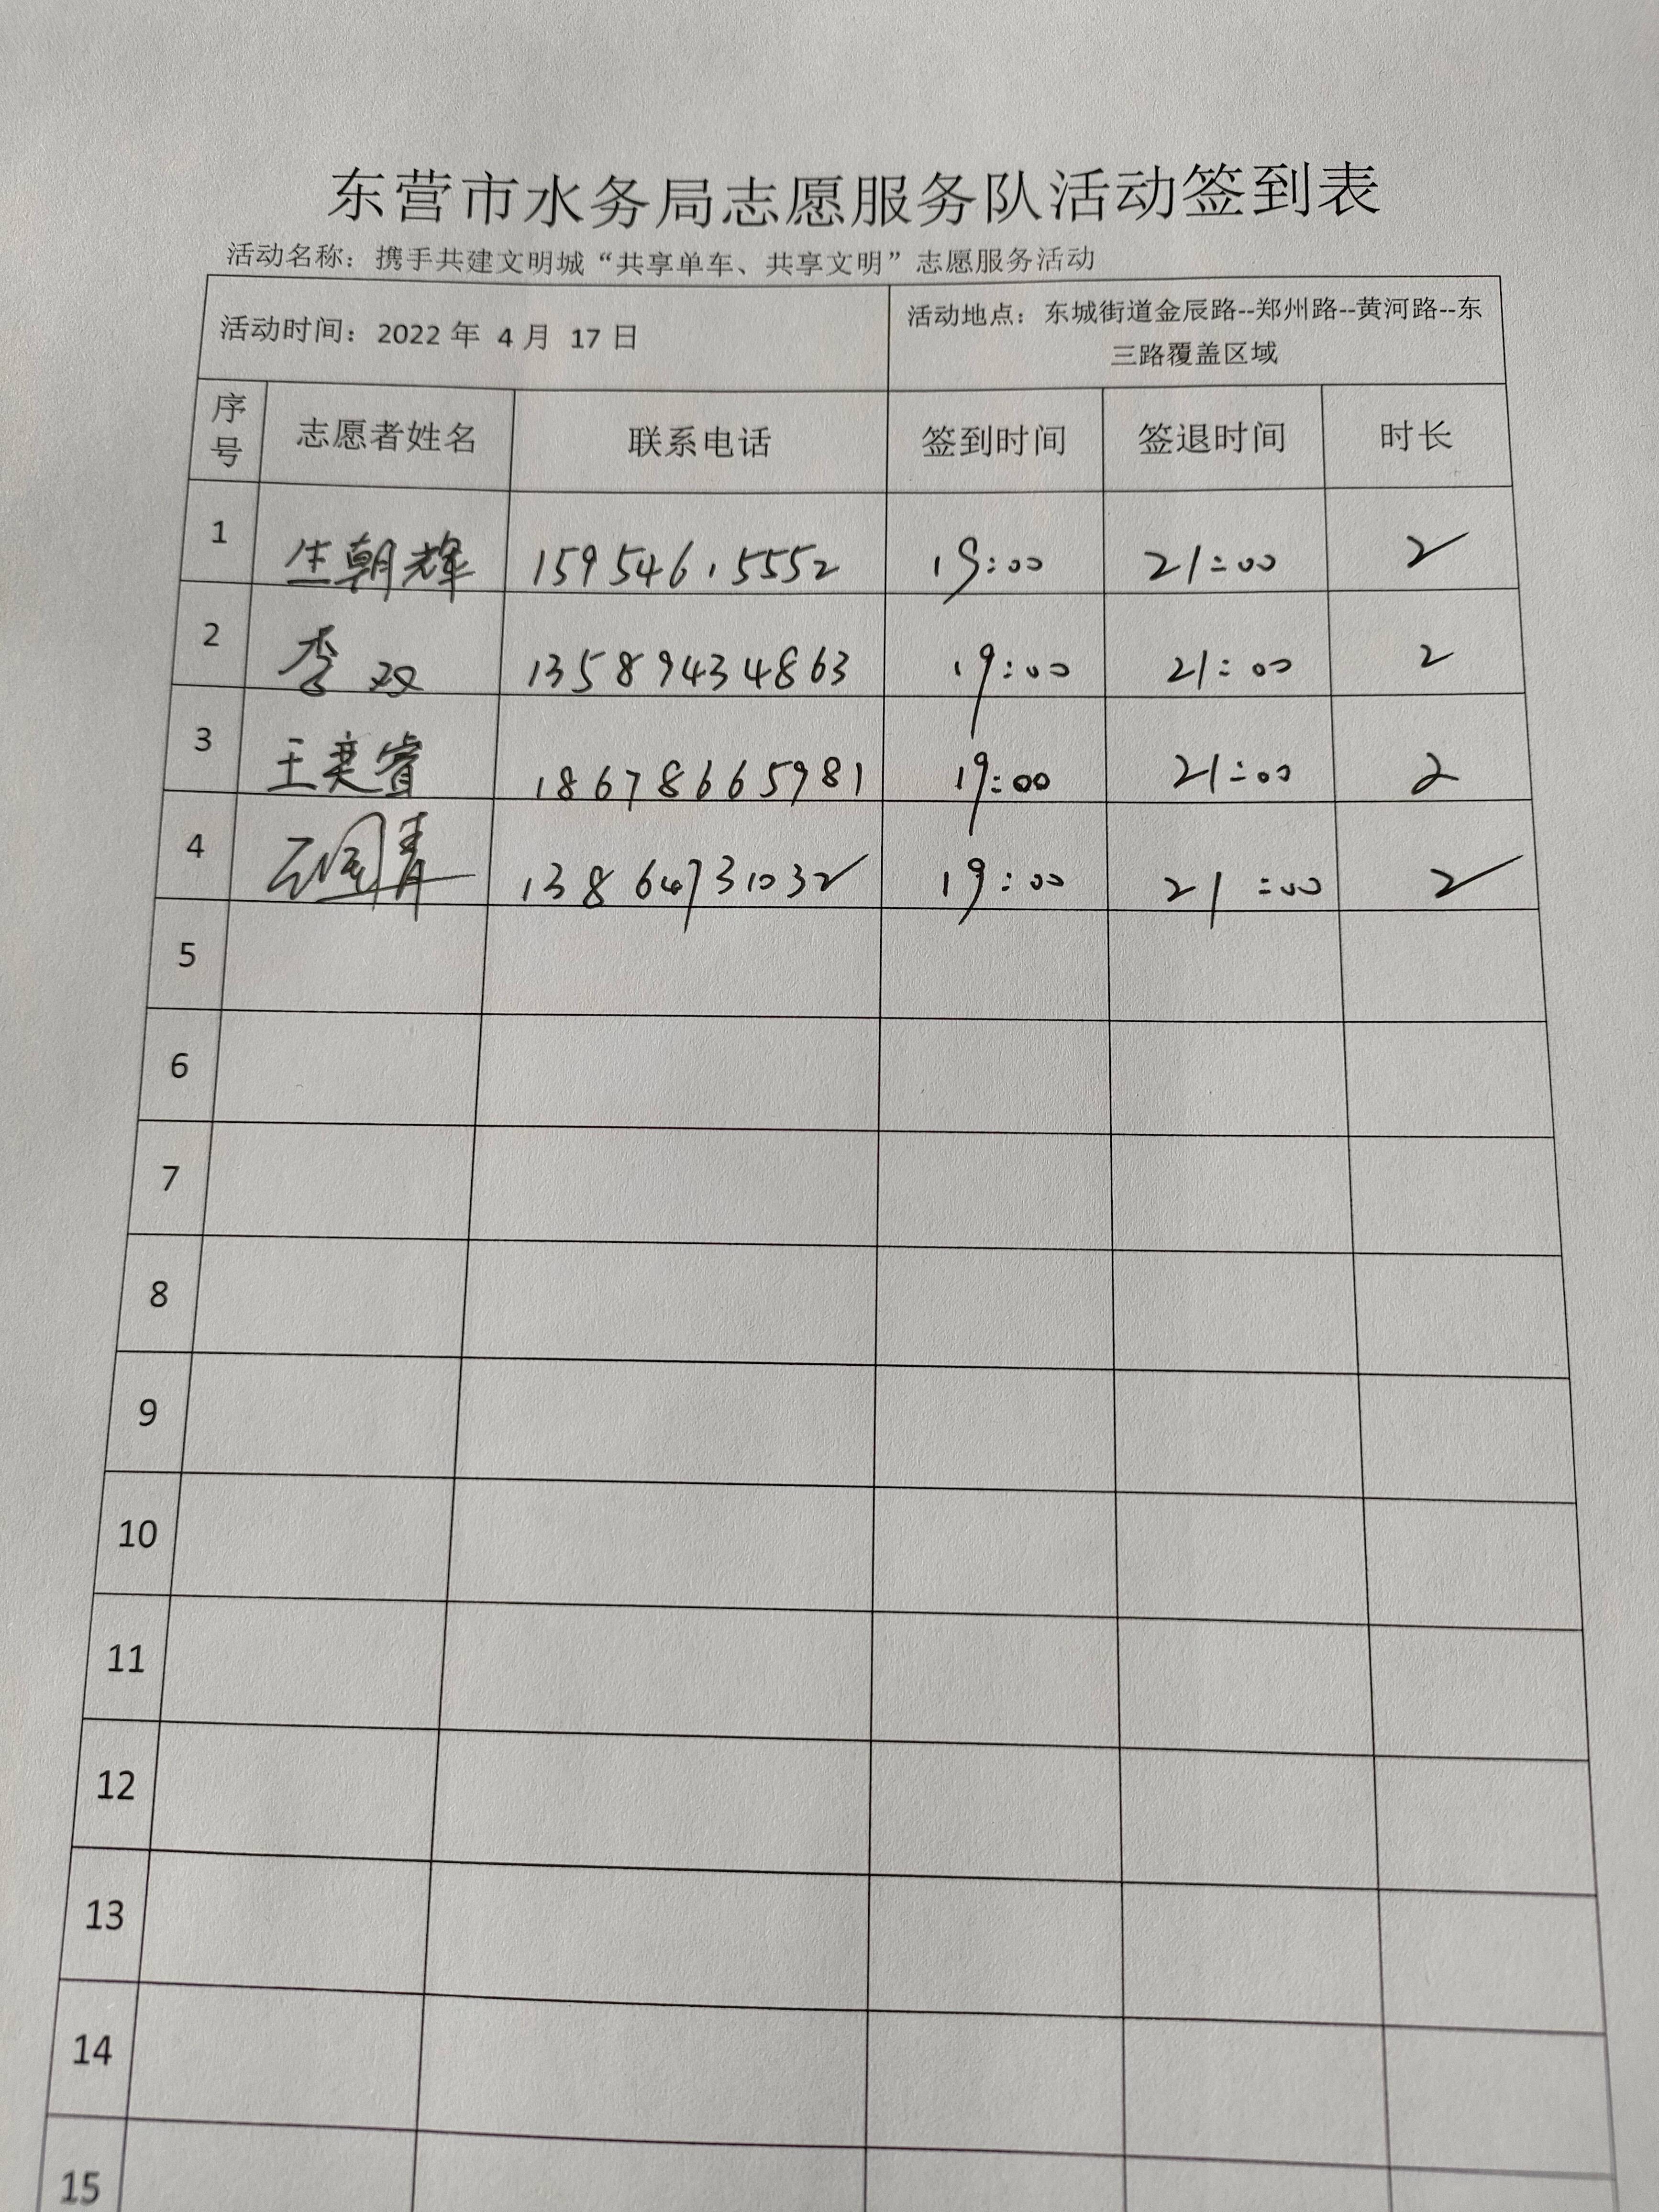 东营市水务局志愿服务队活动签到表
活动名称：携手共建文明城“共享单车、共享文明”志愿服务活动
活动时间：2022 年 4 月 17 日 活动地点：东城街道金辰路--郑州路--黄河路--东
三路覆盖区域
序号 志愿者姓名 联系电话 签到时间 签退时间 时长
1 生朝辉 15954615552 19:00 21:00 2
2 李双 13589434863 19:00 21:00 2
3 王奕睿 18678665981 19:00 21:00 2
4 13864731032 19:00 21:00 2
5
6
7
8
9
10
11
12
13
14
15